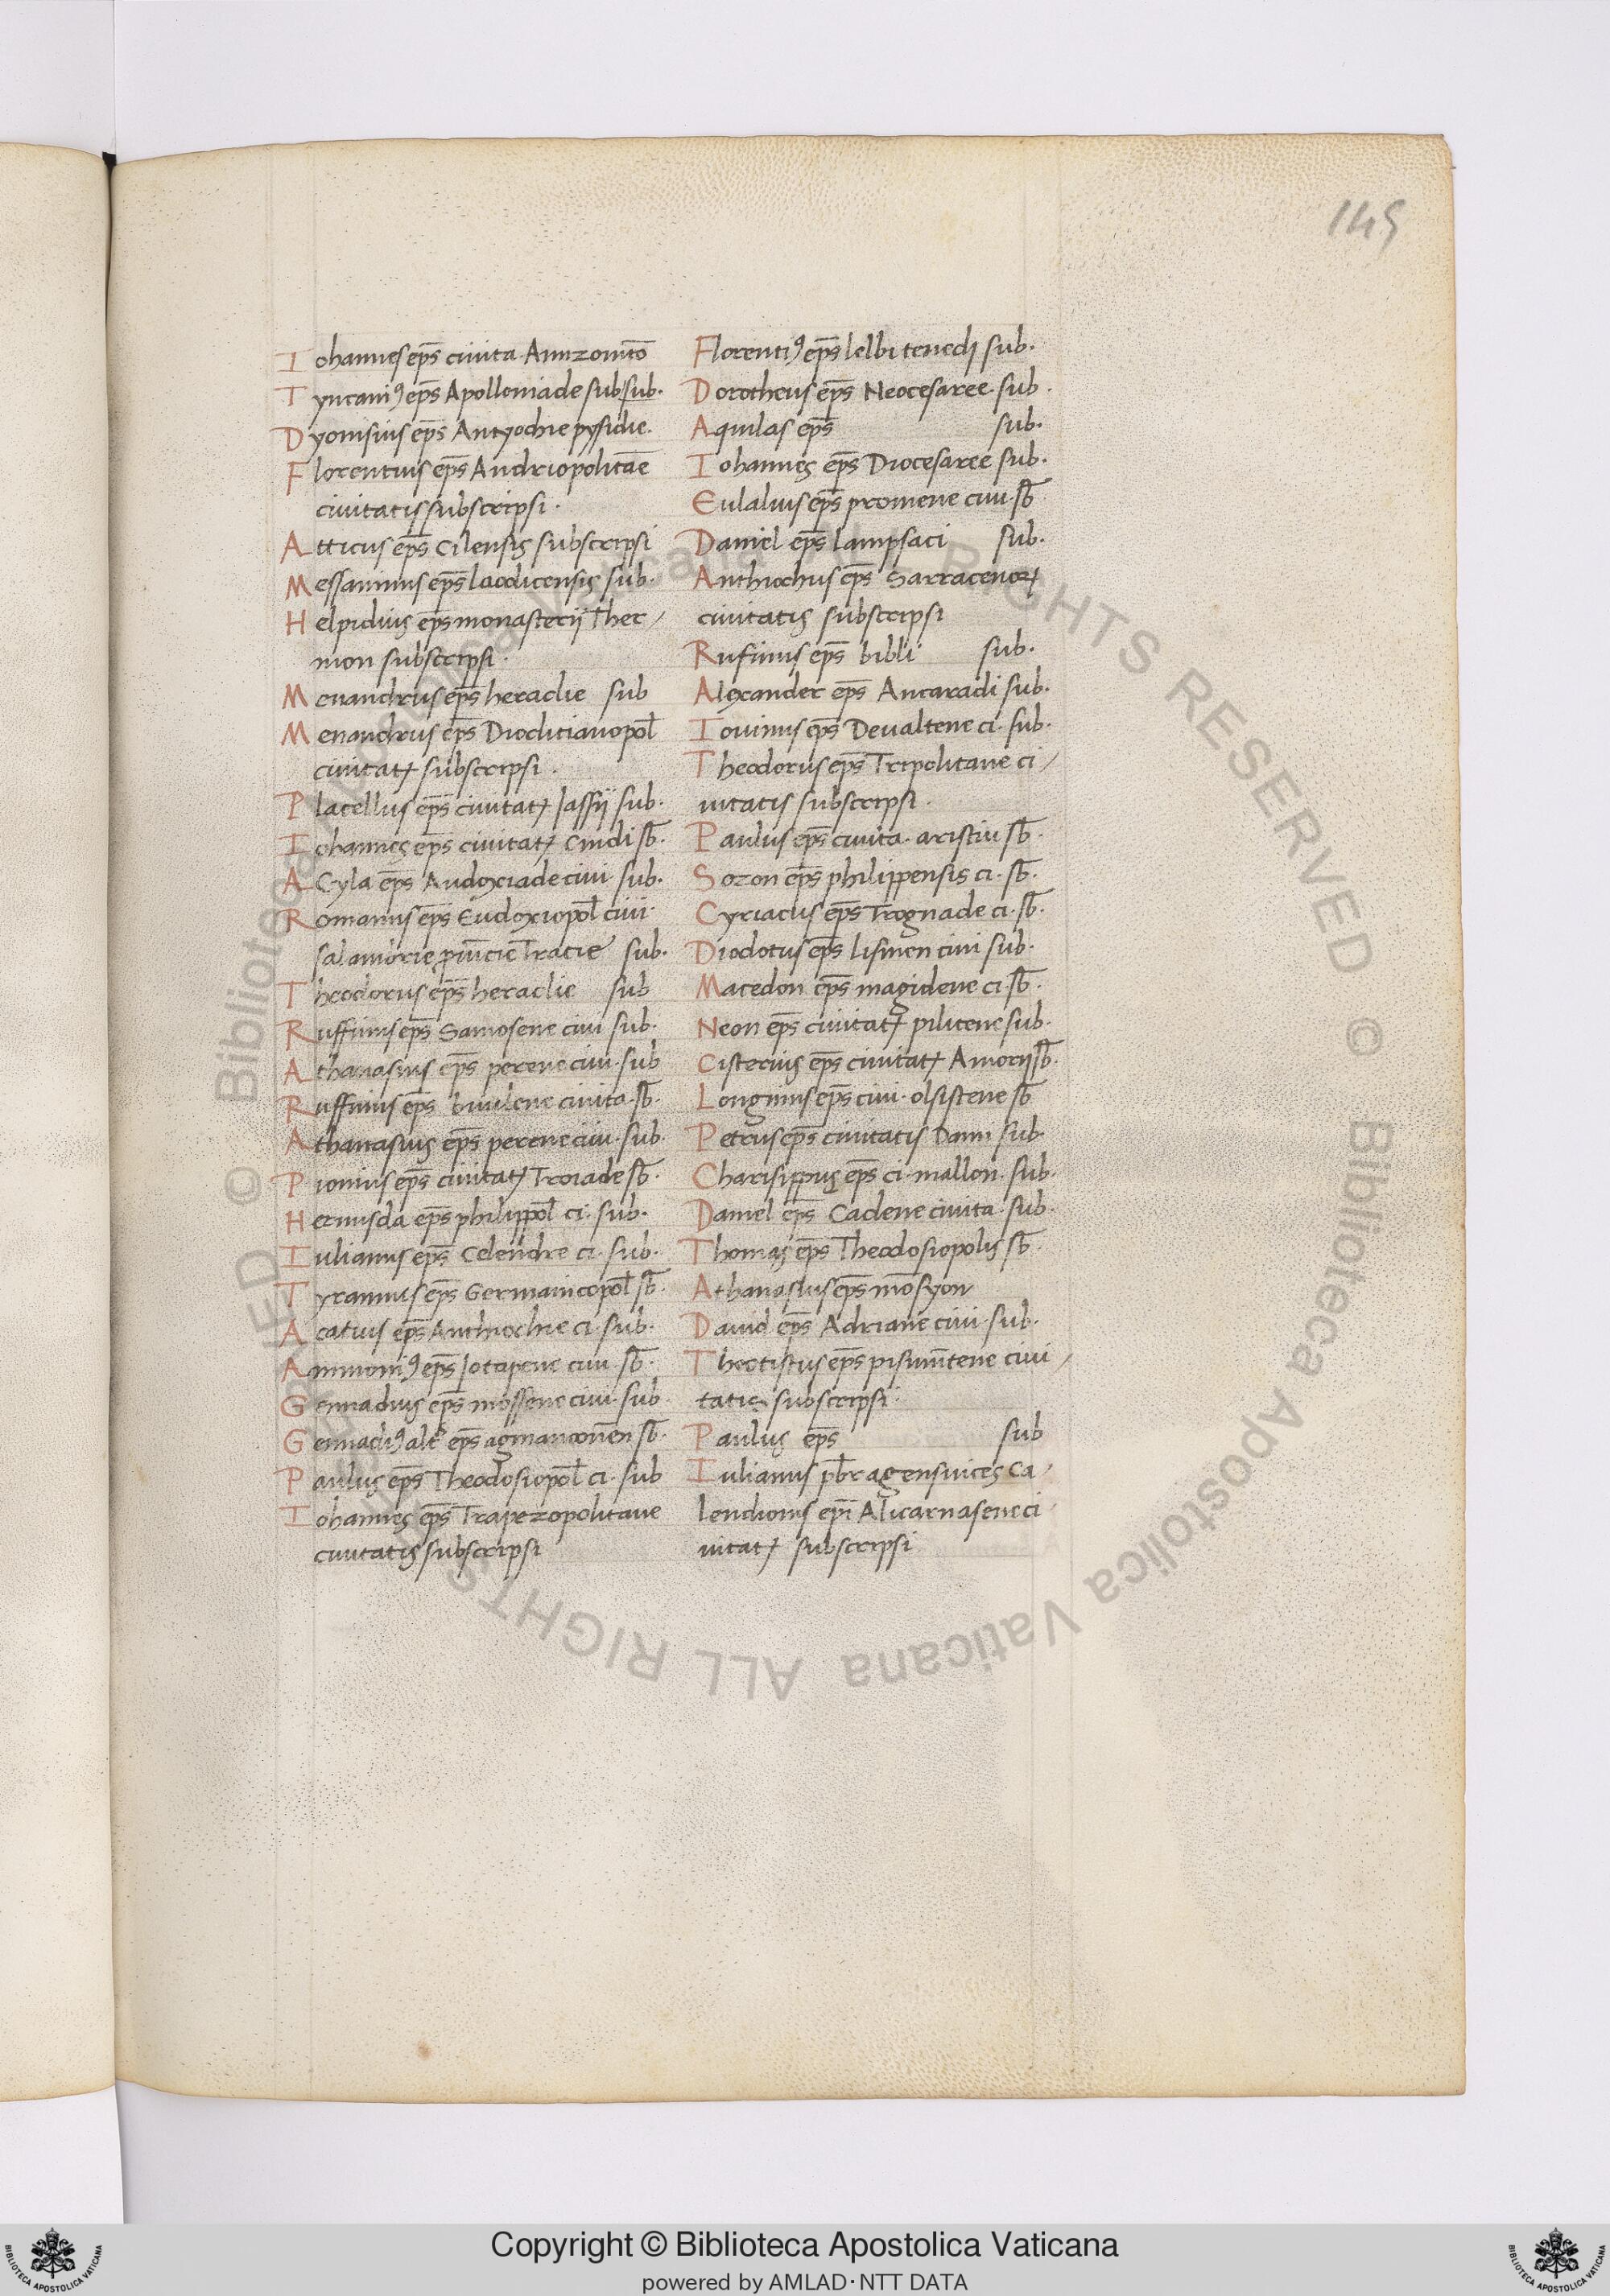 145
Iohannes ep̄s ciuita. Anizomto
Tyncaniꝰ ep̄s Apolloniade sub sub.
Dyonisius ep̄s Antyochie pysidie.
Florentius ep̄s Andriopolitāe
ciuitatis subscripsi.
Atticus ep̄s Cilensis subscripsi
Messaninus ep̄s laodicensis sub.
Helpidius ep̄s monasterij Ther/
mon subscripsi.
Meuandrus ep̄s heraclie sub
Menandrus ep̄s Dioclitianopol̄
ciuitatꝭ subscripsi.
Placellus ep̄s ciuitatꝭ Iassij sub.
Iohannes ep̄s ciuitatꝭ Cnidi sb̄.
ACyla ep̄s Audoxiade ciui. sub.
Romanus ep̄s Eudoxiopol̄ ciui.
salamorie ꝓuīcie Tracie sub.
Theodorus ep̄s heraclie sub
Ruffinus ep̄s Samosene ciui sub.
Athanasius ep̄s perene ciui. sub
Ruffinus ep̄s ciuita. sb̄.
Athanasius ep̄s perene ciui. sub.
Pionius ep̄s ciuitatꝭ Troiade sb̄.
Hermisda ep̄s philippol̄ ci. sub.
Iulianus ep̄s Celendre ci. sub.
Tyrannus ep̄s Germanicopol̄ sb̄.
Acatius ep̄s Anthiochie ci. sub.
Ammoniꝰ ep̄s Iotapene ciui. sb̄.
Gennadius ep̄s mossene ciui. sub.
Gennadiꝰ alt᷑ ep̄s sb̄.
Paulus ep̄s Theodosiopol̄ ci. sub
Iohannes ep̄s Trapezopolitane
ciuitatis subscripsi
Florentiꝰ ep̄s lelbi tenedij sub.
Dorotheus ep̄s Neocesaree. sub.
Aquilas ep̄s sub.
Iohannes ep̄s Diocesaree sub.
Eulalius ep̄s promene ciui. sb̄
Daniel ep̄s lampsaci sub.
Anthiochus ep̄s Sarracenoꝝ
ciuitatis subscripsi
Rufinus ep̄s bibli sub.
Alexander ep̄s Antaradi sub.
Iouinus ep̄s Deualtene ci. sub.
Theodorus ep̄s Tripolitane ci/
uitatis subscripsi.
Paulus ep̄s ciuita. aristiu sb̄.
Sozon ep̄s philippensis ci. sb̄.
Cyriacus ep̄s Trognade ci. sb̄.
Diodotus ep̄s lismen ciui sub.
Macedon ep̄s magidene ci. sb̄.
Neon ep̄s ciuitatꝭ pilitene sub.
Cisterius ep̄s ciuitatꝭ Amorij sb̄.
Longinus ep̄s ciui. olsistene sb̄
Petrus ep̄s ciuitatis Dann sub.
Charisippus ep̄s ci. mallon. sub.
Daniel ep̄s Cadene ciuita. sub.
Thomas ep̄s Theodosiopolis sb̄.
Athanasius ep̄s mōsyon
Dauid ep̄s Adriane ciui. sub.
Theotistus ep̄s pisinūtene ciui/
tatis subscripsi.
Paulus ep̄s sub
Iulianus pb̄r agens uices Ca/
lendionis ep̄i Alicarnasene ci/
uitatꝭ subscripsi
© Biblioteca Apostolica Vaticana ALL RIGHTS RESERVED
Copyright © Biblioteca Apostolica Vaticana
powered by AMLAD·NTT DATA
BIBLIOTECA APOSTOLICA VATICANA